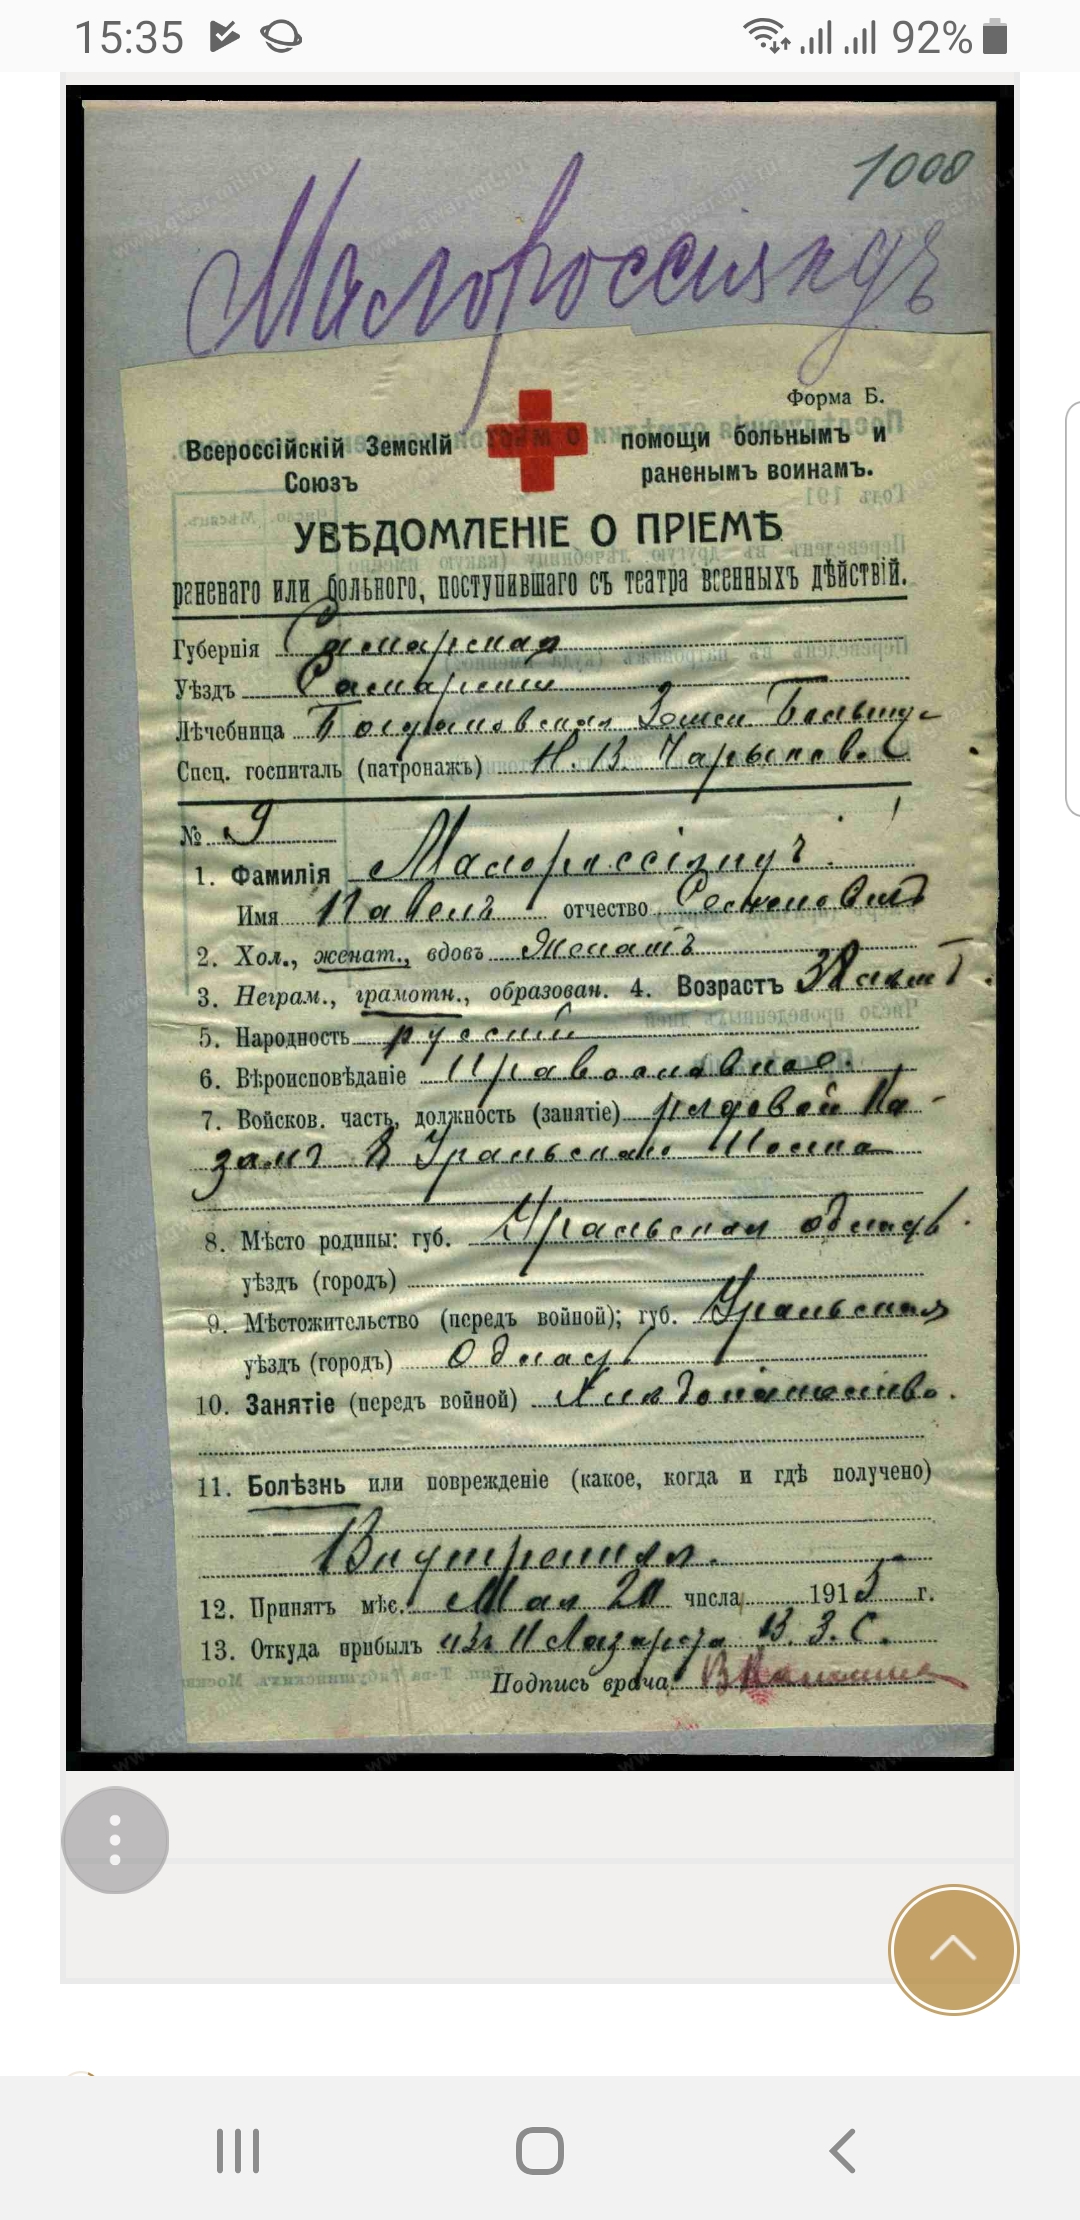 15:35 92%
1008
Малороссіянцъ
Форма Б.
Всероссійскій Земскій помощи больнымъ и
Союзъ раненымъ воинамъ.
УВѢДОМЛЕНІЕ О ПРІЕМѢ
раненаго или больного, поступившаго съ театра военныхъ дѣйствій.
Губернія Самарская
Уѣздъ Самарскій
Лѣчебница Богдановская Земск.
Спец. госпиталь (патронажъ) Н. В. Чарыкова
№ 9
1. Фамилія Малороссіянцъ
Имя Павелъ отчество Семеновичъ
2. Хол., женат., вдовъ Женатъ
3. Неграм., грамотн., образован. 4. Возрастъ
5. Народность русскій
6. Вѣроисповѣданіе Православное.
7. Войсков. часть, должность (занятіе) рядовой Ка-
закъ 8 Уральскаго Полка
8. Мѣсто родины: губ. Уральская область.
уѣздъ (городъ)
9. Мѣстожительство (передъ войной); губ. Уральская
уѣздъ (городъ) Область
10. Занятіе (передъ войной) Хлѣбопашество.
11. Болѣзнь или поврежденіе (какое, когда и гдѣ получено)
Внутренняя.
12. Принятъ мѣс. Мая 20 числа 1915 г.
13. Откуда прибылъ изъ II Лазарета В. З. С.
Подпись врача